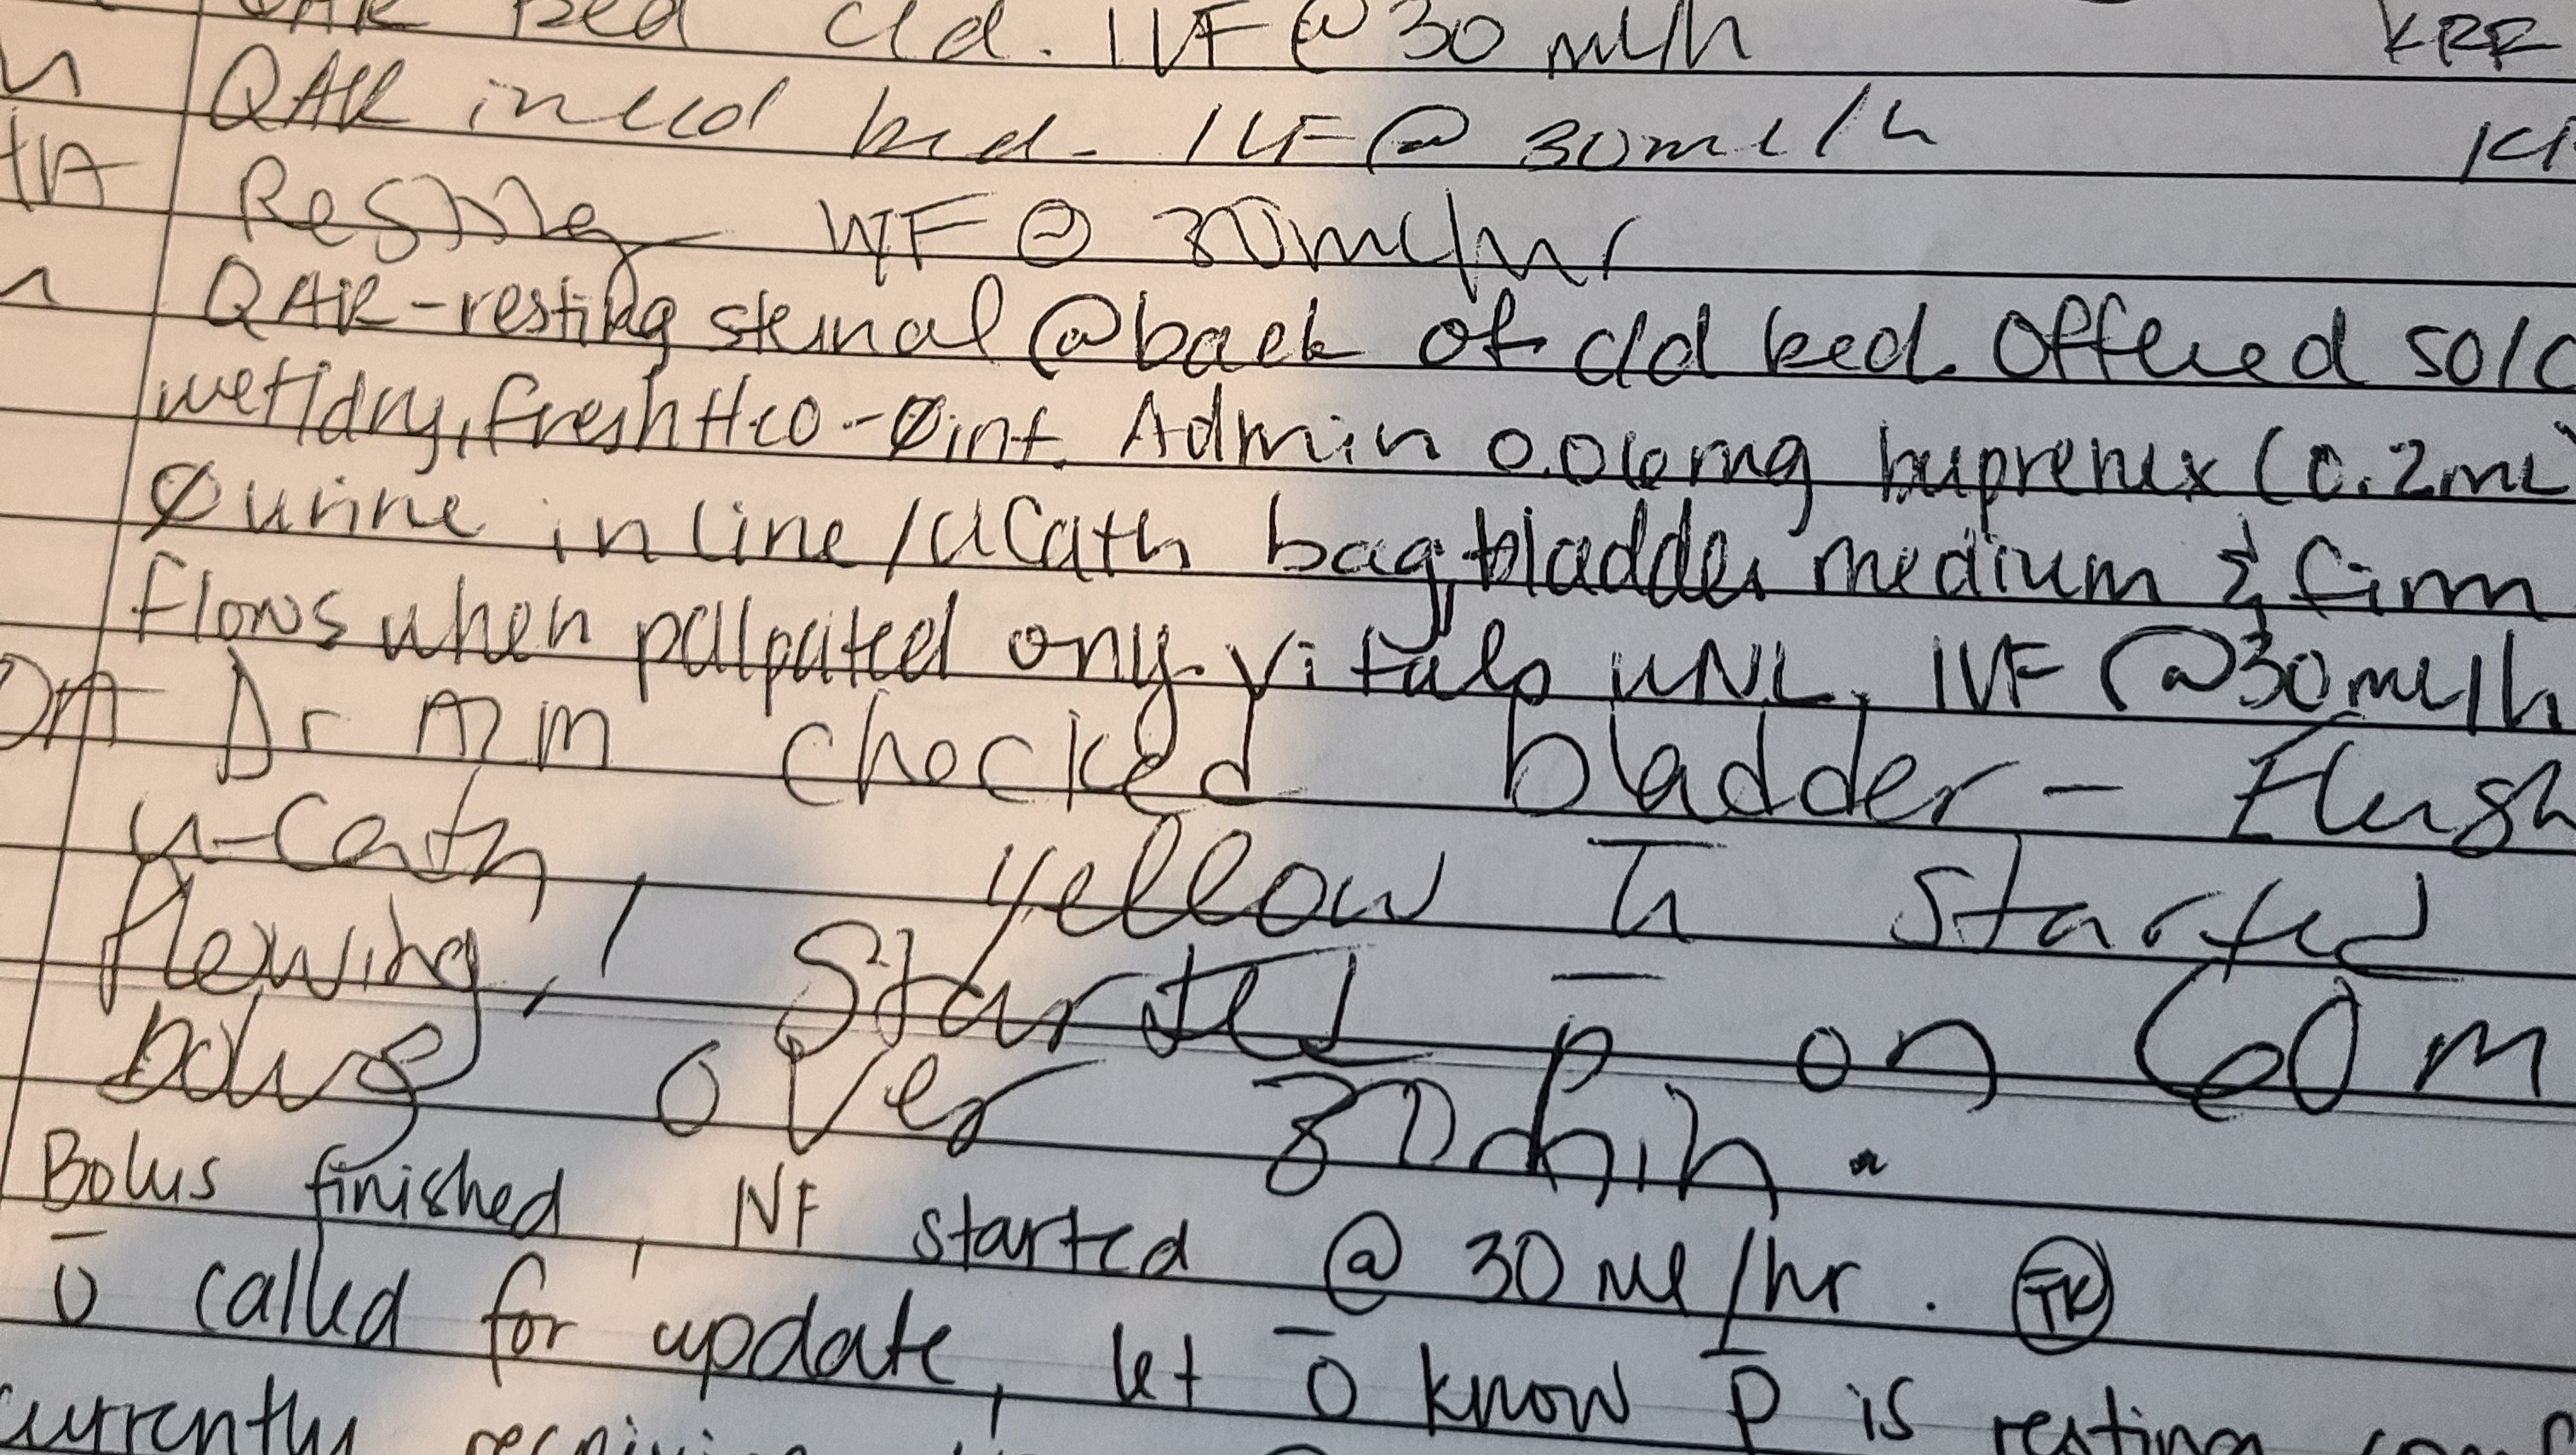 QAR bed c/d. IVF @ 30 ml/h KRR
QAR in ccd bed. IVF @ 30ml/h
Resting IVF @ 30ml/hr
QAR-resting sternal @back of c/d bed. Offered
wet/dry, fresh H2O - Øint. Admin 0.06mg buprenex (0.2mL)
Ø urine in line/UCath bag, bladder medium & firm
flows when palpated ony. Vitals WNL, IVF @30ml/h
Dr AZM checked bladder - Flush
u-cath, yellow ū started
flowing, started p̄ on 60 m
bolus over 30min.
Bolus finished, IVF started @ 30 ml/hr. TK
ō called for update, let ō know p̄ is resting
currently